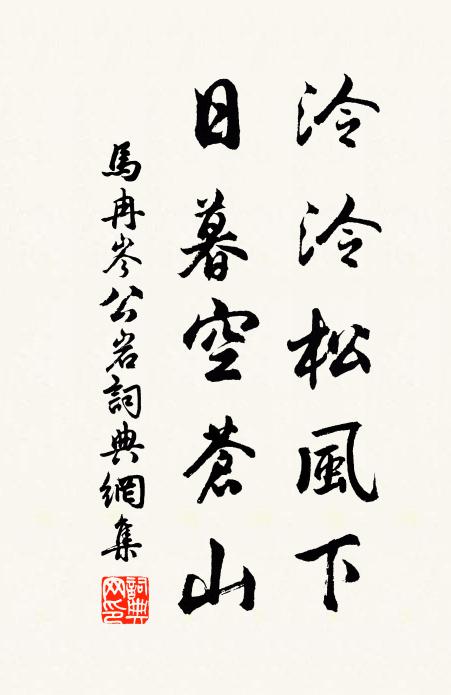 泠泠松風下
日暮空蒼山
馬冉岑公岩詞典網集
詞典网印